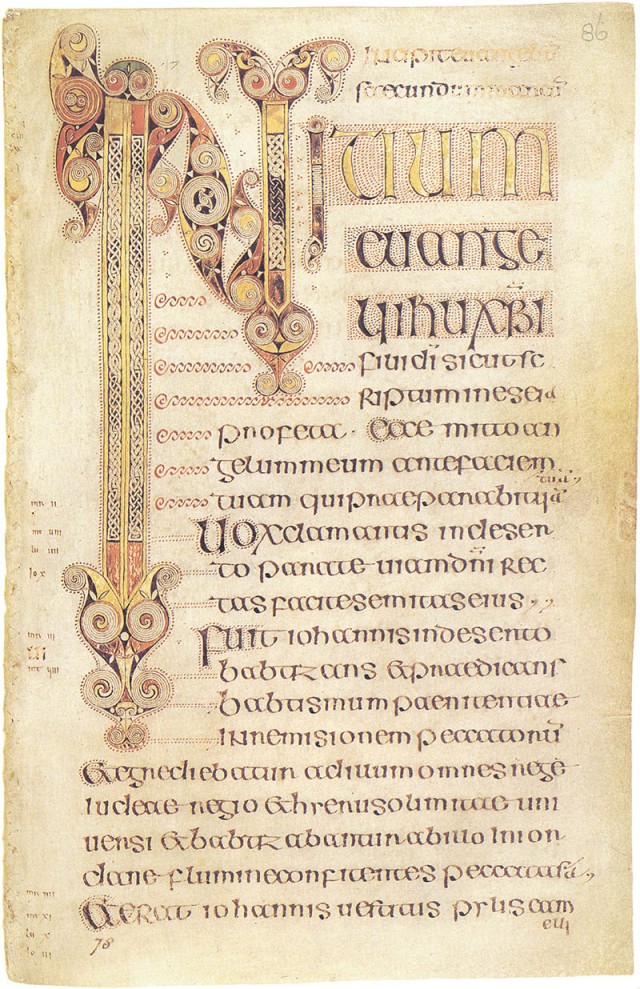 86
INITIUM
euange
lii ihu xpi
filii di sicut sc
riptum in eseia
profeta · Ecce mitto an
gelum meum ante faciem
tuā
tuam qui praeparabit uiā
Uox clamantis in deser
to parate uiam dni rec
tas facite semitas eius
Fuit iohannis in deserto
babtizans et praedicans
babtismum paenitentiae
in remisionem peccatorū
Et egrediebatur ad illum omnes
iudeae regio et hierusolimitae uni
uersi et babtizabantur ab illo in ior
dane flumine confitentes peccata sua
Et erat iohannis uestitus pylis cam
elli
78